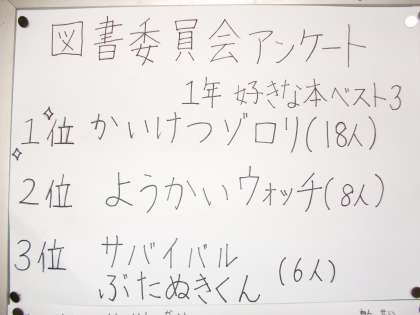 図書委員会アンケート
1年 好きな本ベスト3
1位 かいけつゾロリ(18人)
2位 ようかいウォッチ(8人)
3位 サバイバル
ぶたぬきくん (6人)